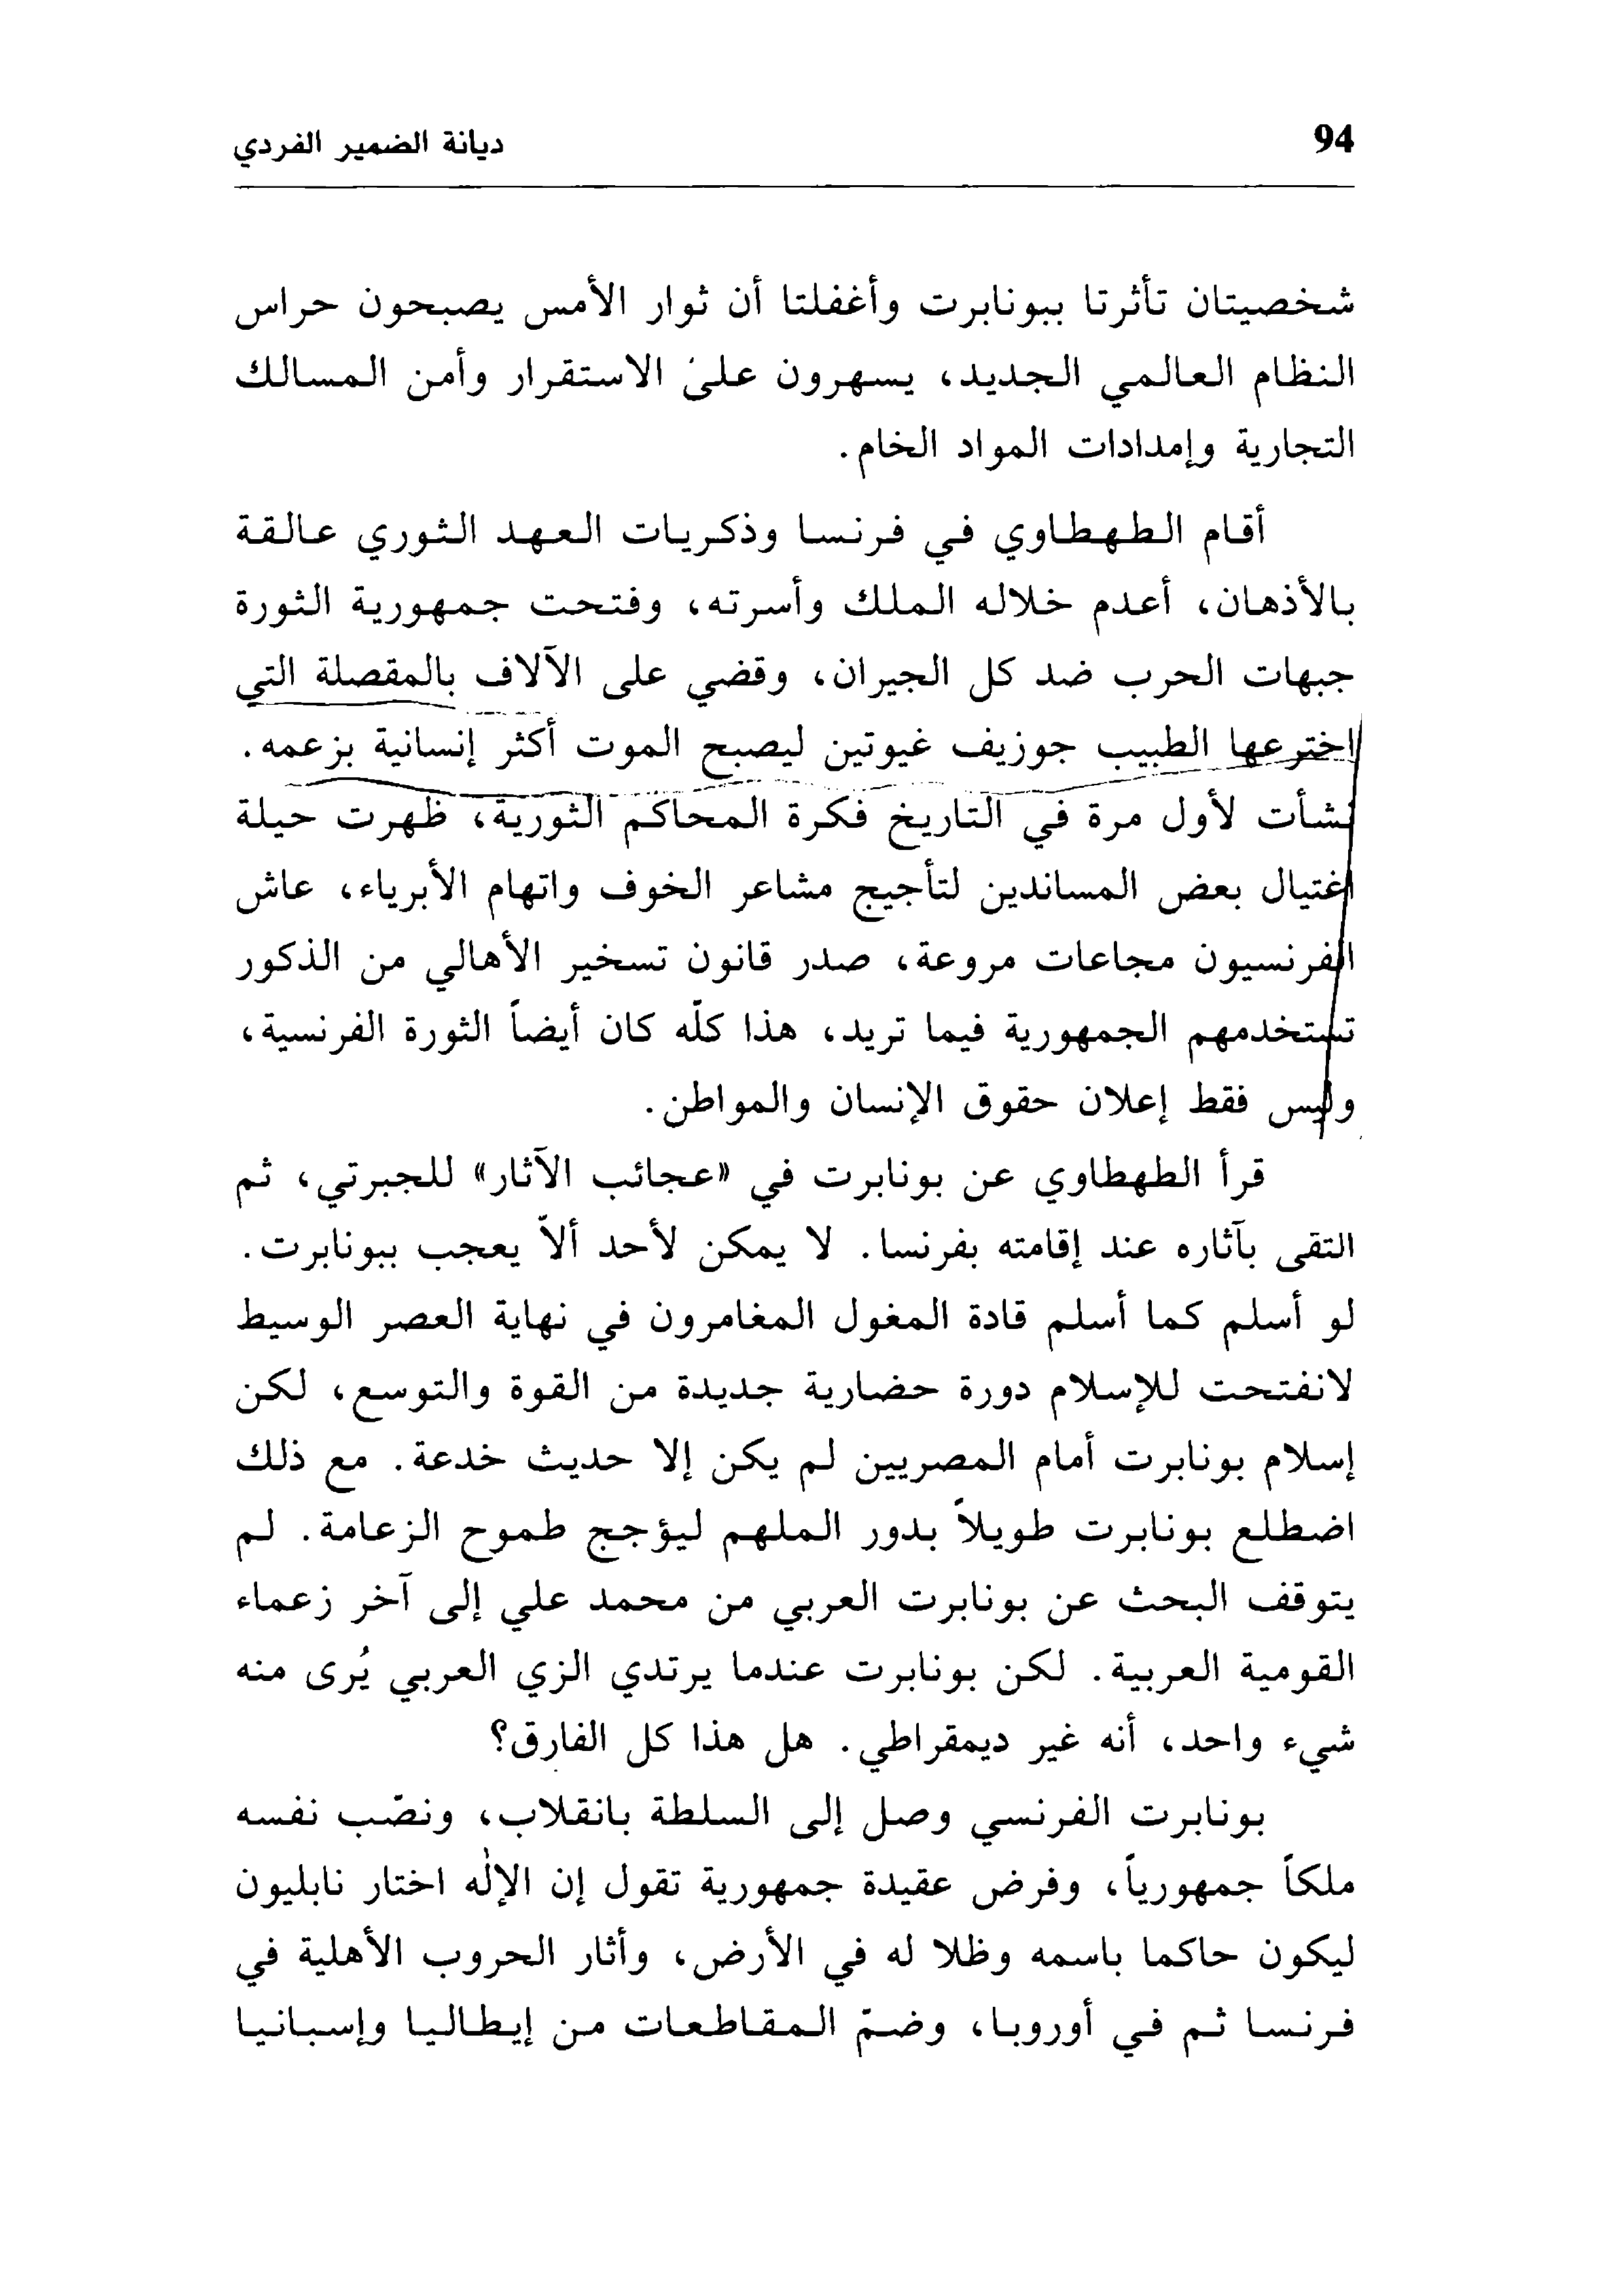 94
ديانة الضمير الفردي
شخصيتان تأثرتا ببونابرت وأغفلتا أن ثوار الأمس يصبحون حراس
النظام العالمي الجديد، يسهرون على الاستقرار وأمن المسالك
التجارية وإمدادات المواد الخام.
أقام الطهطاوي في فرنسا وذكريات العهد الثوري عالقة
بالأذهان، أعدم خلاله الملك وأسرته، وفتحت جمهورية الثورة
جبهات الحرب ضد كل الجيران، وقضي على الآلاف بالمقصلة التي
اخترعها الطبيب جوزيف غيوتين ليصبح الموت أكثر إنسانية بزعمه.
نشأت لأول مرة في التاريخ فكرة المحاكم الثورية، ظهرت حيلة
اغتيال بعض المساندين لتأجيج مشاعر الخوف واتهام الأبرياء، عاش
الفرنسيون مجاعات مروعة، صدر قانون تسخير الأهالي من الذكور
تستخدمهم الجمهورية فيما تريد، هذا كلّه كان أيضاً الثورة الفرنسية،
وليس فقط إعلان حقوق الإنسان والمواطن.
قرأ الطهطاوي عن بونابرت في «عجائب الآثار» للجبرتي، ثم
التقى بآثاره عند إقامته بفرنسا. لا يمكن لأحد ألاّ يعجب ببونابرت.
لو أسلم كما أسلم قادة المغول المغامرون في نهاية العصر الوسيط
لانفتحت للإسلام دورة حضارية جديدة من القوة والتوسع، لكن
إسلام بونابرت أمام المصريين لم يكن إلا حديث خدعة. مع ذلك
اضطلع بونابرت طويلاً بدور الملهم ليؤجج طموح الزعامة. لم
يتوقف البحث عن بونابرت العربي من محمد علي إلى آخر زعماء
القومية العربية. لكن بونابرت عندما يرتدي الزي العربي يُرى منه
شيء واحد، أنه غير ديمقراطي. هل هذا كل الفارق؟
بونابرت الفرنسي وصل إلى السلطة بانقلاب، ونصّب نفسه
ملكاً جمهورياً، وفرض عقيدة جمهورية تقول إن الإلٰه اختار نابليون
ليكون حاكما باسمه وظلا له في الأرض، وأثار الحروب الأهلية في
فرنسا ثم في أوروبا، وضمّ المقاطعات من إيطاليا وإسبانيا